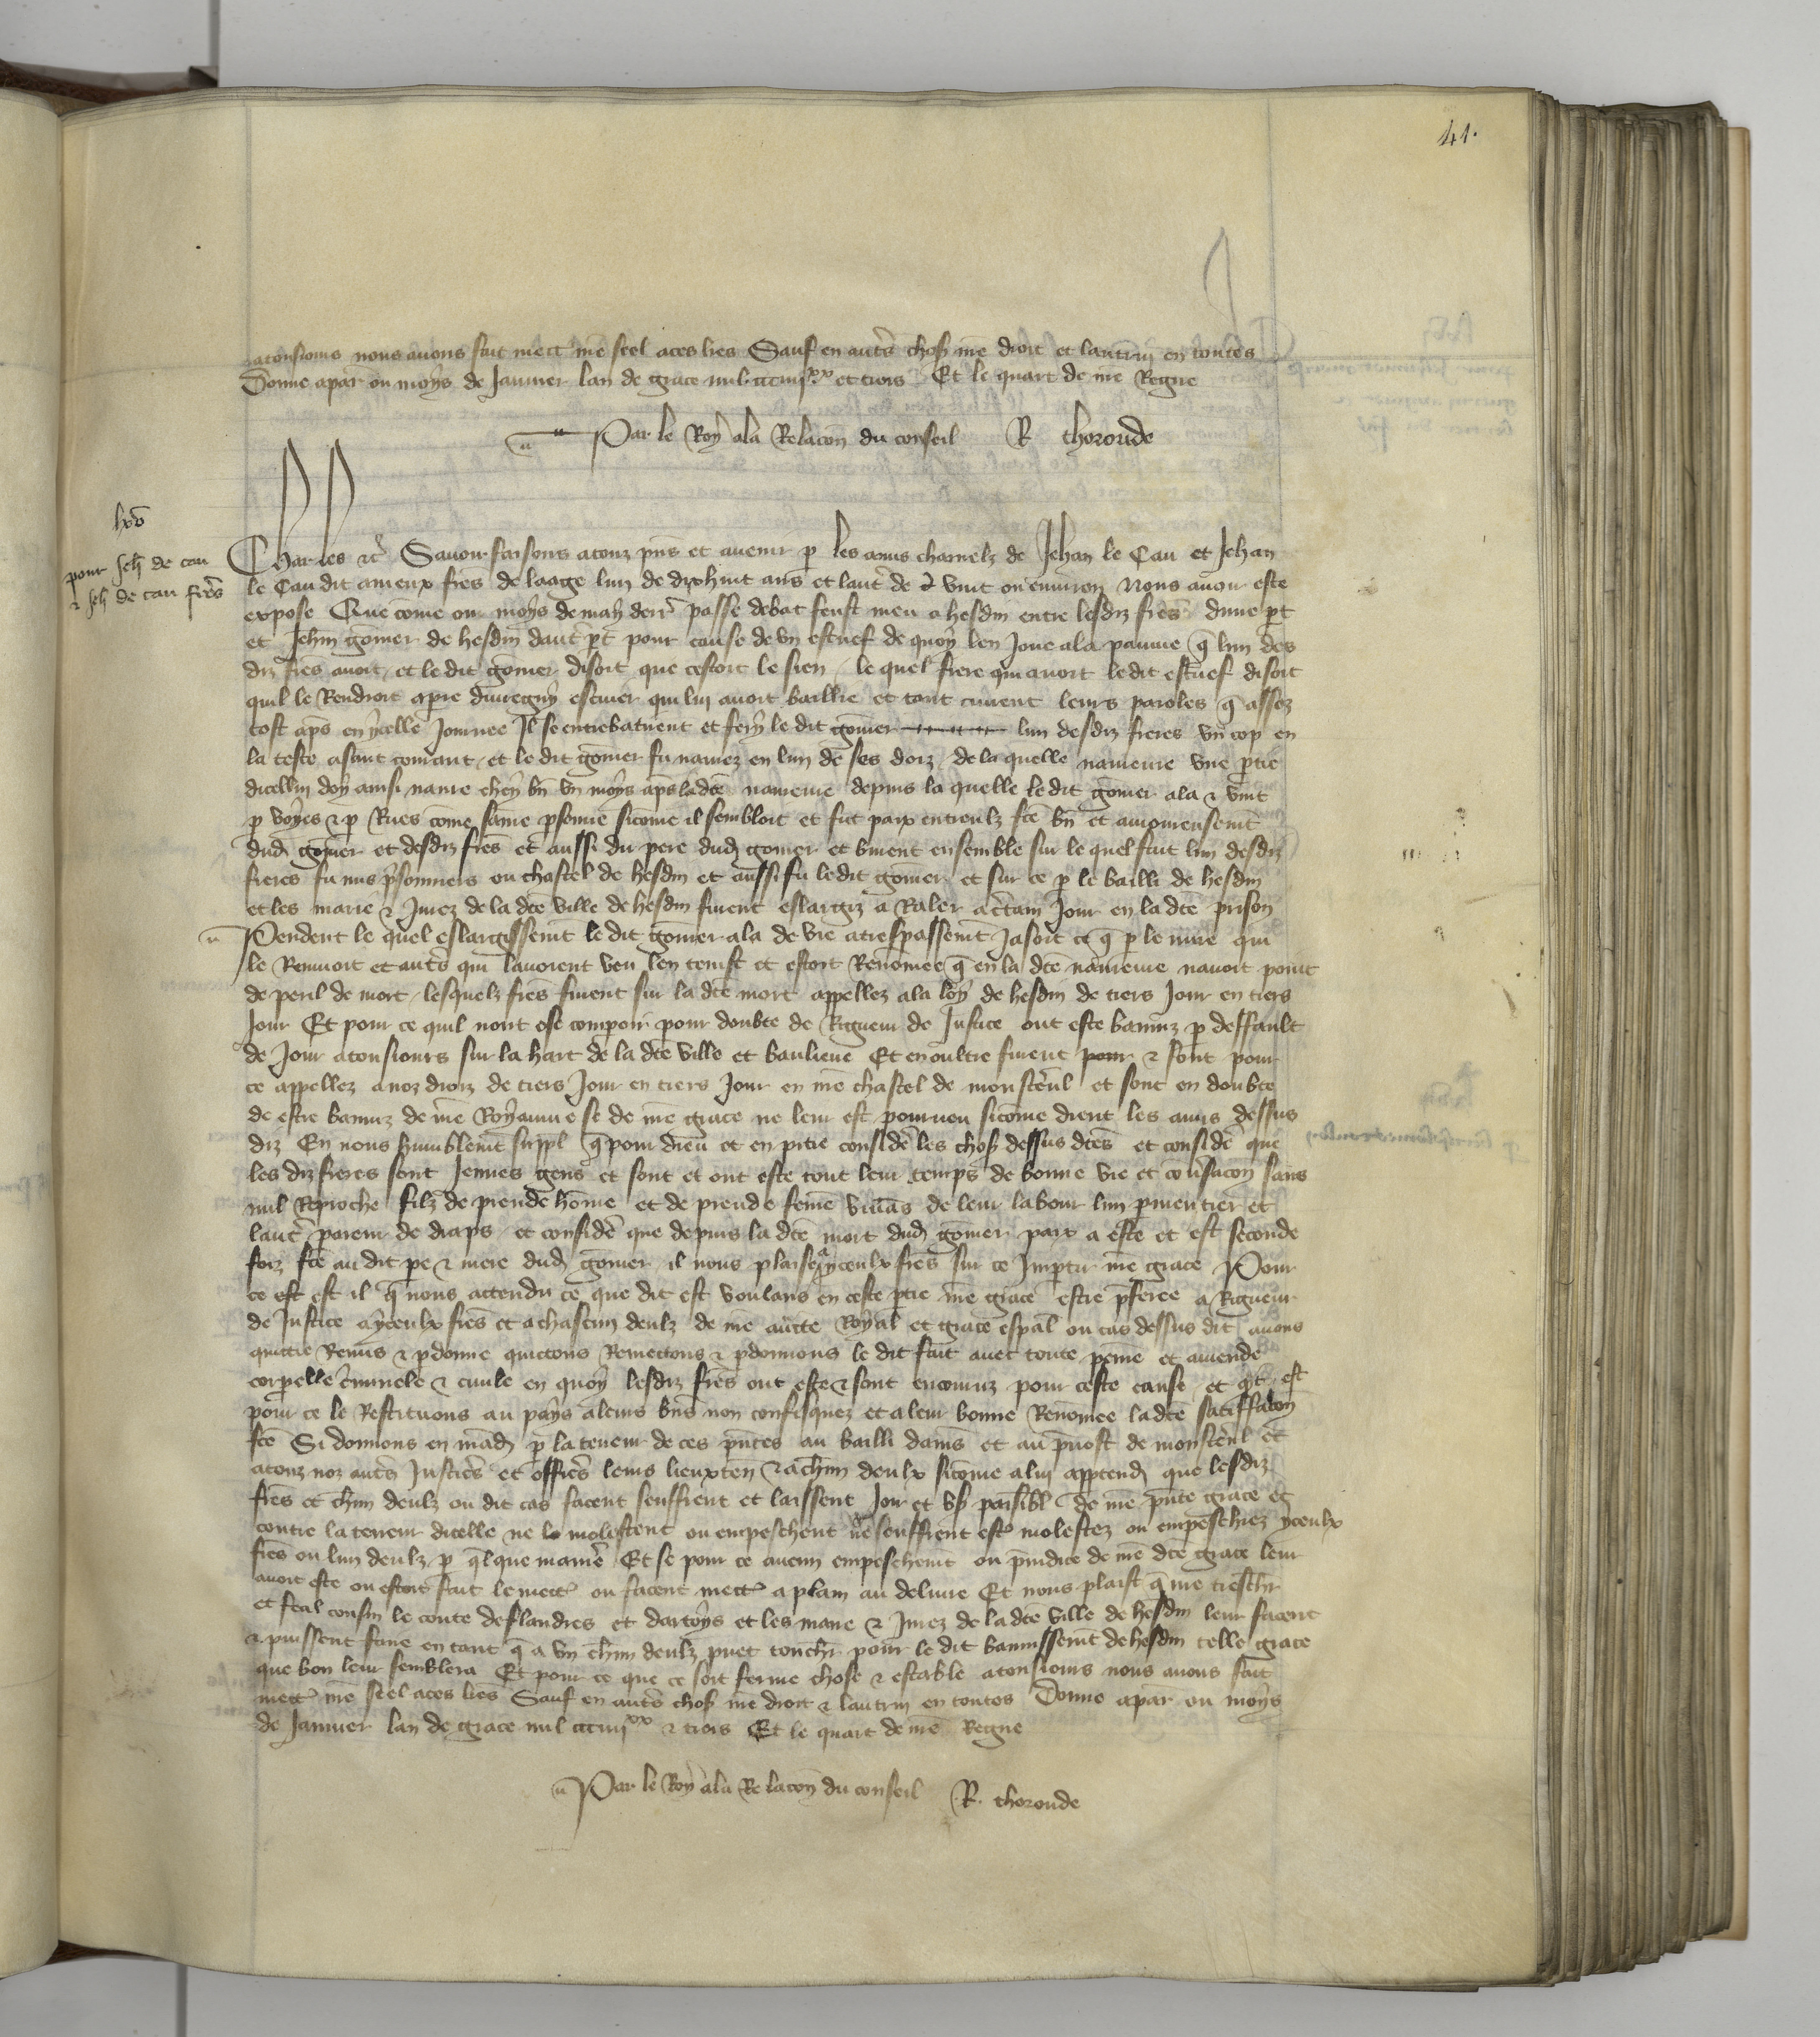 41.
atousiours nous avons fait mectre nre seel a ces lres Sauf en autres choses nre droit et lautruy en toutes
Donne a paris ou moys de Janvier lan de grace mil ccc iiijxx et trois Et le quart de nre Regne
Par le Roy a la Relacon du conseil R thoroude
lxv
pour Jeh de cau
& Jeh de cau freres
Charles &c Savoir faisons a touz pns et avenir p les amis charnelz de Jehan le Cau et Jehan
le Cau dit amieux freres de laage lun de dixhuit ans et lautre de vint ou environ Nous avoir este
expose Que come ou moys de may derr passe debat feust meu a hesdin entre lesdiz freres dune pt
et Jehin gomer de hesdin dautre pt pour cause de un estuef de quoy len Joue a la paume q lun des
diz freres avoit et le dit gomer disoit que cestoit le sien le quel frere qui avoit le dit estuef disoit
quil le Rendroit a pierre escuier qui lui avoit baillie et tant eurent leurs paroles q assez
tost aps en ycelle Journee Il se entrebatirent et fery le dit gomer lun desdiz freres un cop en
la teste a sanc courant et le dit gomer fu navrez en lun de ses doiz de la quelle navreure une ptie
dicellui doy ainsi navre chey bn un moys aps ladce navreure depuis la quelle le dit gomer ala & vint
p voyes & p Rues come saine psonne sicome il sembloit et fut paix entreulz fce bn et amoureusemt
dud gomer et desdiz freres et aussi du pere dud gomer et burent ensemble sur le quel fait lun desdiz
freres fu mis prisonniers ou chastel de hesdin et aussi fu ledit gomer et sur ce p le bailli de hesdin
et les maire & Jurez de la dce ville de hesdin furent eslargiz a Raler a ctain Jour en la dce prison
Pendent le quel eslargissemt le dit gomer ala de vie a trespassemt Jasoit ce q p le mire qui
le Remuoit et autres qui lavoient veu len tenist et estoit Renomee q en la dce navreure navoit point
de peril de mort lesquelz freres furent sur la dce mort appellez a la loy de hesdin de tiers Jour en tiers
Jour Et pour ce quil nont ose compoir pour doubte de Rigueur de Justice ont este banniz p deffault
de Jour a tousiours sur la hart de la dce ville et banlieue Et en oultre furent pour & sont pour
ce appellez a noz droiz de tiers Jour en tiers Jour en nre chastel de monsterul et sont en doubte
de estre banniz de nre Royaume se de nre grace ne leur est pourveu sicome dient les amis dessus
diz En nous humblemt suppl q pour dieu et en pitie considere les choses dessus dces et considere que
les diz freres sont Jeunes gens et sont et ont este tout leur temps de bonne vie et conversacon sans
nul Reproche filz de preude home et de preude feme vivas de leur labour lun pmentier et
lautre pareur de draps et considere que depuis la dce mort dud gomer paix a este et est seconde
foiz fce au dit pe & mere dud gomer il nous plaise a yceulx freres sur ce Imptir nre grace Pour
ce est est il q nous attendu ce que dit est voulans en ceste ptie nre grace estre pferee a Rigueur
de Justice a yceulx freres et a chascun deulz de nre aucte Royal et grace espal ou cas dessus dit avons
quictie Remis & pdonne quictons Remectons & pdonnons le dit fait avec toute peine et amende
corpelle criminele & civile en quoy lesdiz freres ont este & sont encouruz pour ceste cause et est
pour ce le Restituons au pays a leurs bns non confisquez et a leur bonne Renomee la dce satiffacon
fce Si donnons en mand p la teneur de ces pntes au bailli damns et au pvost de monsterul et
a touz noz autres Justiciers et officiers leurs lieuxten & a chun deulx sicome a lui apptend que lesdiz
freres et chun deulz ou dit cas facent seuffrent et laissent Joir et user paisibl de nre pnte grace et
contre la teneur dicelle ne le molestent ou empeschent ne seuffrent estre molestez ou empeschiez yceulx
freres ou lun deulz p qlque maniere Et se pour ce aucun empeschemt ou prejudice de nre dce grace leur
avoit este ou estoit fait le mectre ou facent mectre a plain au delivre Et nous plaist q nre treschr
et feal cousin le conte de flandres et dartoys et les maire & Jurez de la dce ville de hesdin leur facent
& puissent faire en tant q a un chun deulz puet touchr pour le dit bannissemt de hesdin telle grace
que bon leur semblera Et pour ce que ce soit ferme chose & estable a tousiours nous avons fait
mectre nre seel a ces lres Sauf en autres choses nre droit & lautruy en toutes Donne a paris ou moys
de Janvier lan de grace mil ccc iiijxx & trois Et le quart de nre Regne
Par le Roy a la Relacon du conseil R. thoroude